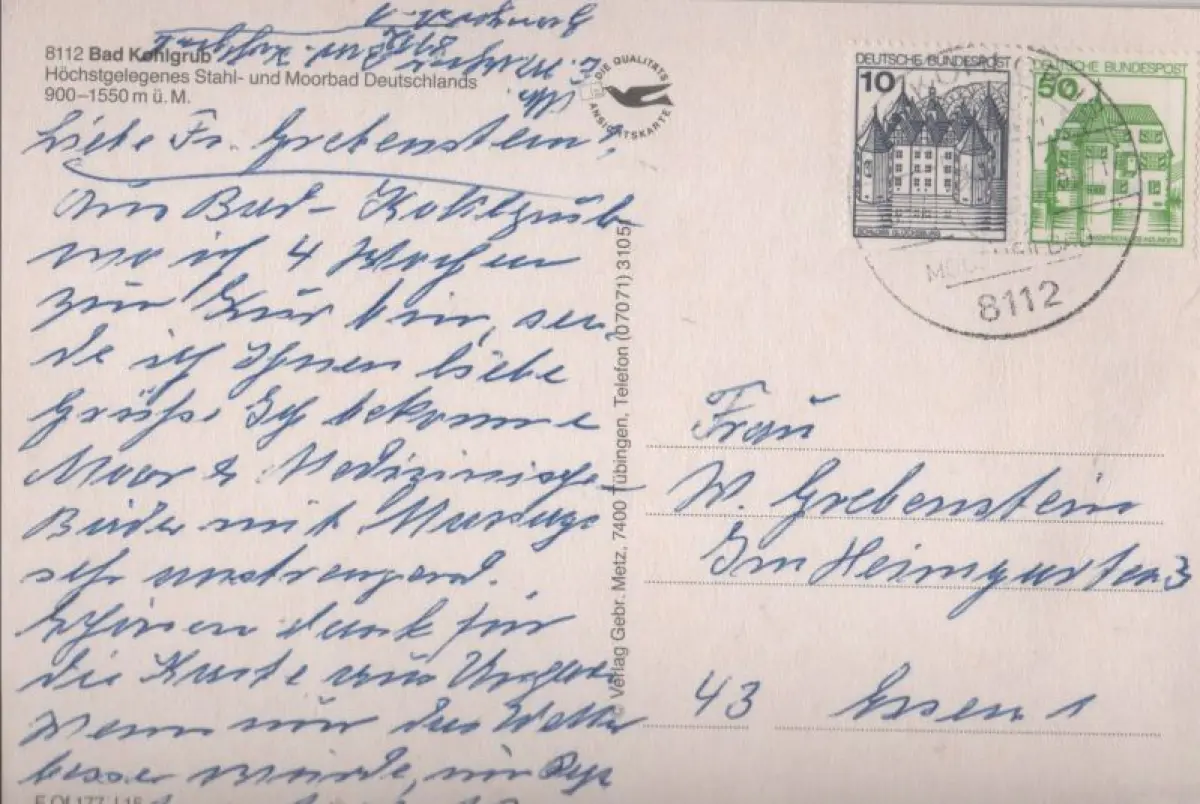 8112 Bad Kohlgrub
Höchstgelegenes Stahl- und Moorbad Deutschlands
900–1550 m ü. M.
DIE QUALITÄTS
ANSICHTSKARTE
Liebe Fr. Grebenstein!
Aus Bad-Kohlgrub
wo ich 4 Wochen
zur Kur bin, sen
de ich Ihnen liebe
Grüße. Ich bekomme
Moor & Medizinische
Bäder mit Massage
sehr anstrengend.
Schönen dank für
die Karte aus Ungarn
Wenn nur das Wetter
besser würde, nur
© Verlag Gebr. Metz, 7400 Tübingen, Telefon (07071) 31051
10 DEUTSCHE BUNDESPOST
SCHLOSS GLÜCKSBURG
50 DEUTSCHE BUNDESPOST
8112
Frau
W. Grebenstein
Im Heimgarten 3
43 Essen 1